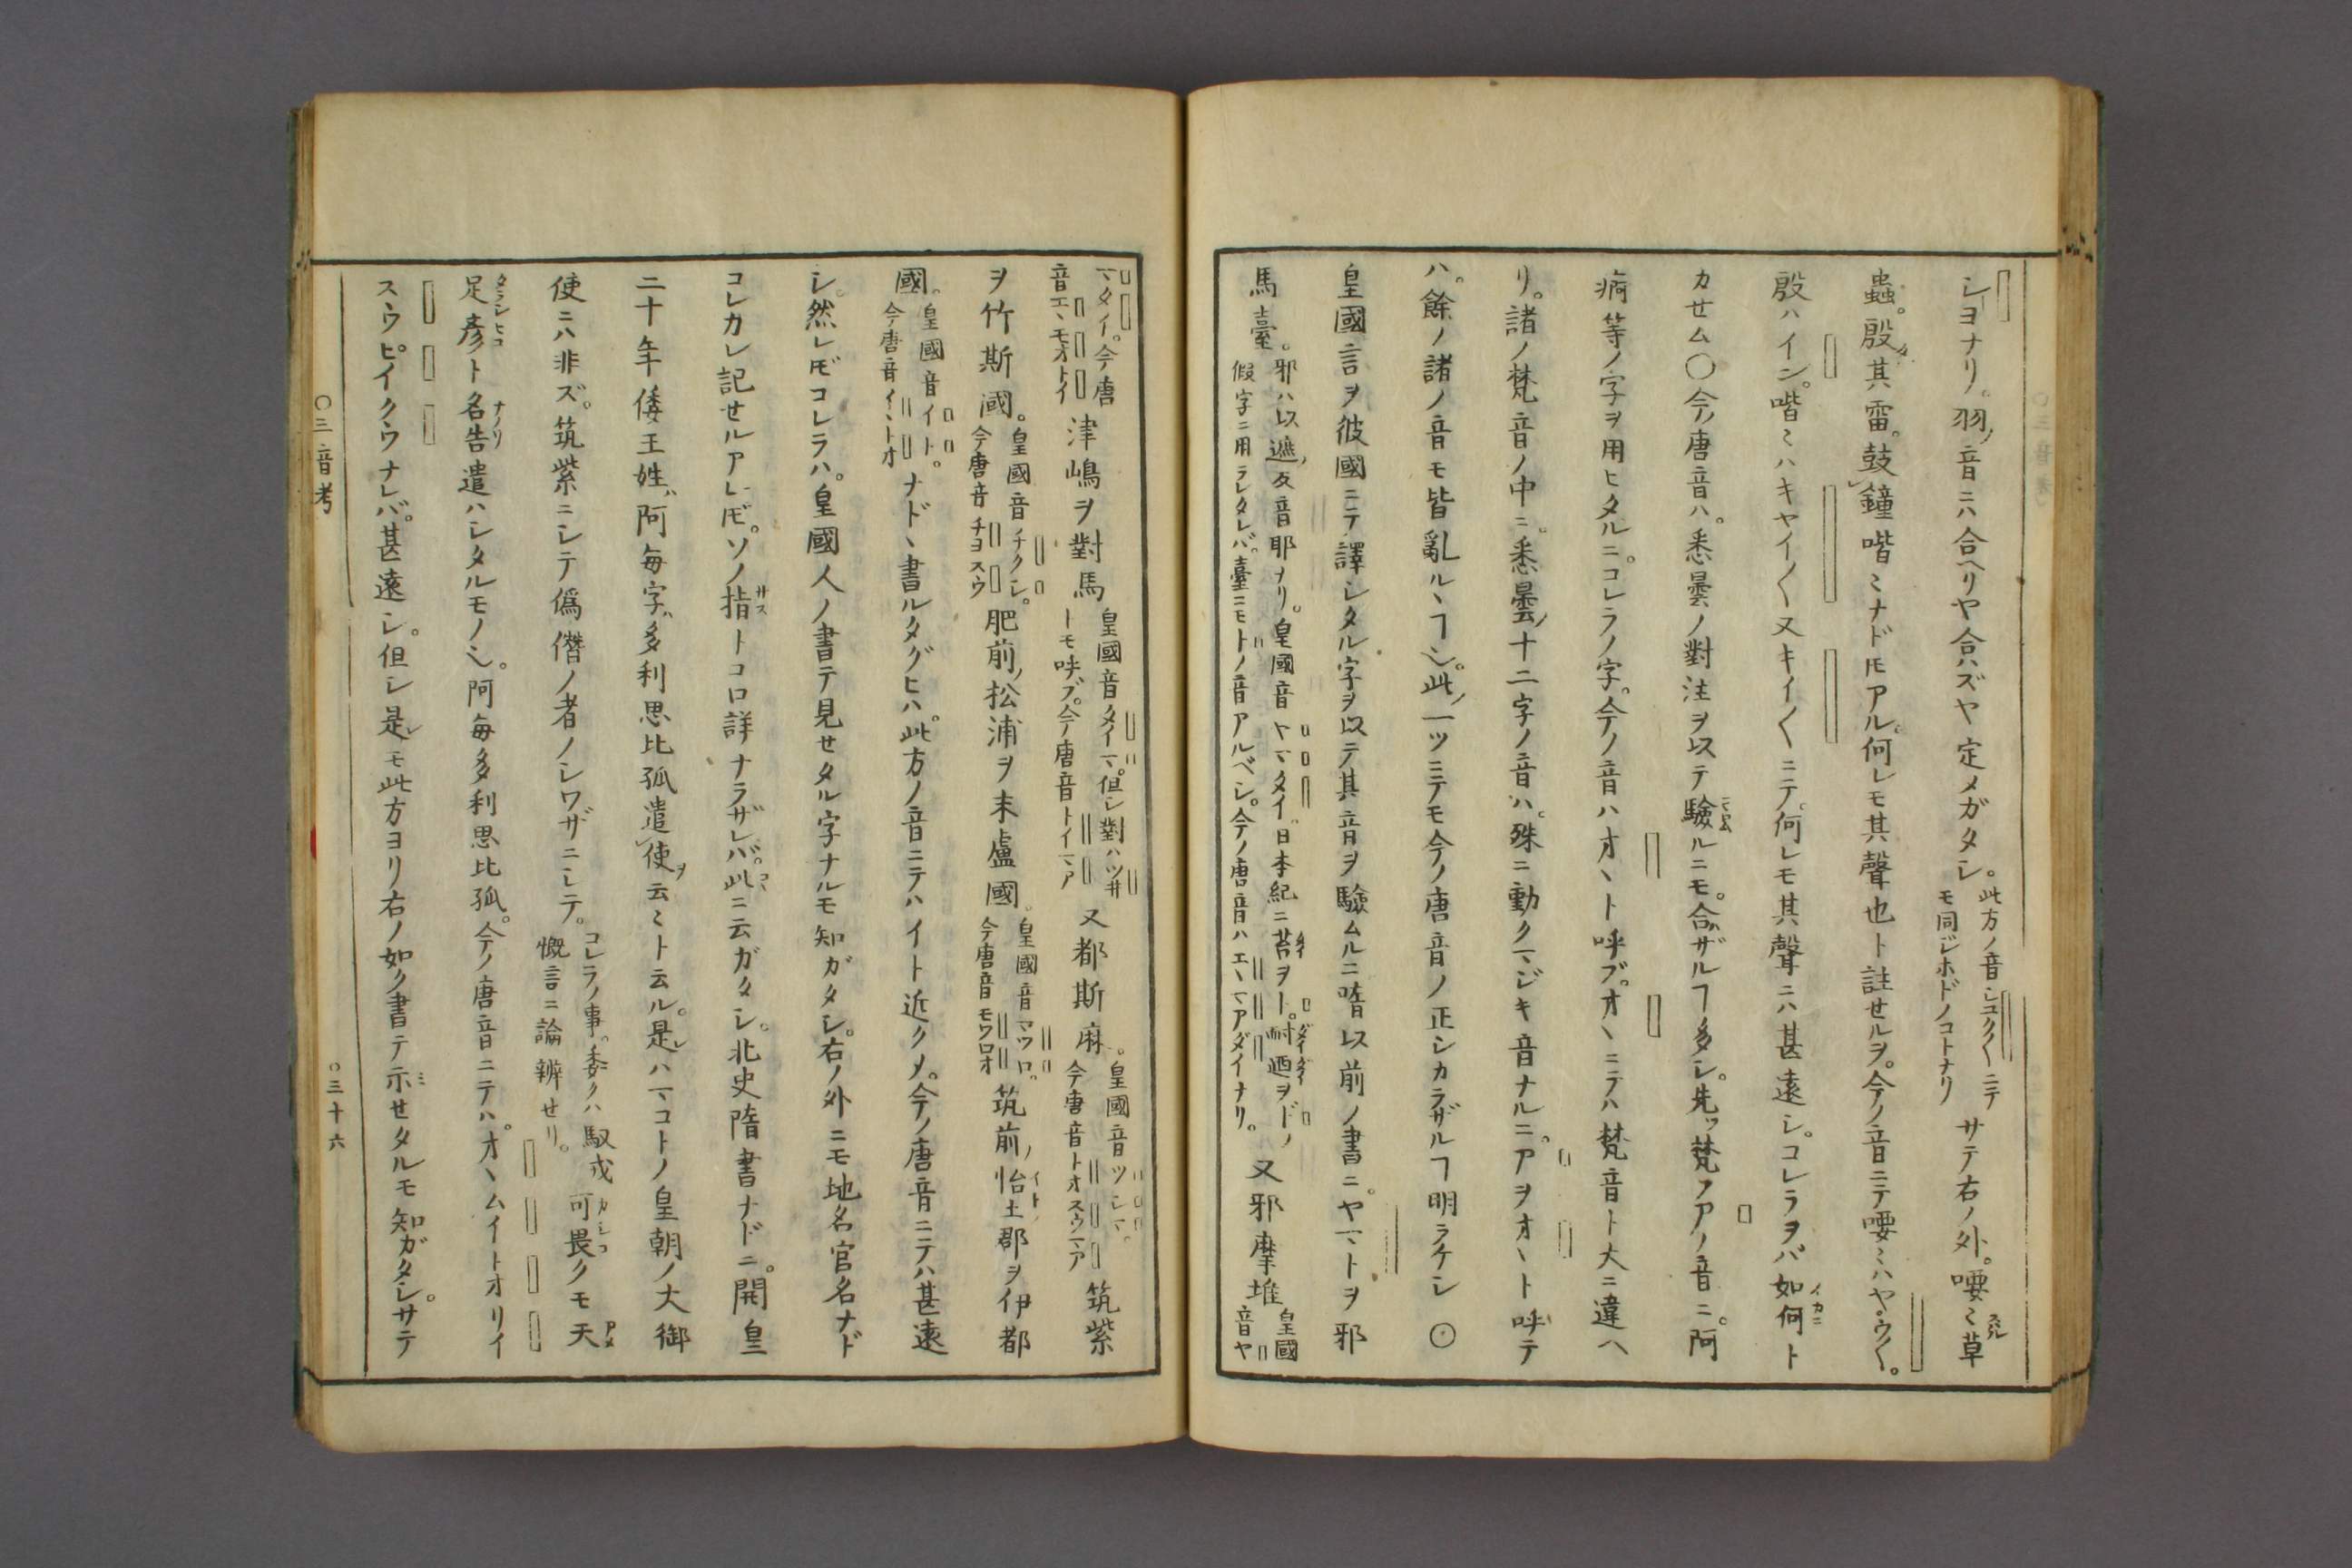 シヨナリ。羽ノ音ニハ合ヘリヤ合ハズヤ定メガタシ。此方ノ音シユクくニテモ同ジホドノコトナリ サテ右ノ外。喓ミ草
蟲。殷其雷。鼓鐘喈ミナドヒモアル。何レモ其聲也ト註セルヲ。今ノ音ニテ喓ミハヤウく。
殷ハイン。喈ミハキヤイく又キイくニテ。何レモ其聲ニハ甚遠シ。コレラヲバ如何イカニト
カせム〇今ノ唐音ハ。悉曇ノ對注ヲ以テ驗ルニモ。合ザルヿ多シ。先ヅ梵ノアノ音ニ。阿
痾等ノ字ヲ用ヒタルニ。コレラノ字。今ノ音ハオヽト呼ブ。オヽニテハ梵音ト大ニ違ヘ
リ。諸ノ梵音ノ中ニ。悉曇ノ十二字ノ音ハ。殊ニ動クマジキ音ナルニ。アヲオヽト呼テ
ハ。餘ノ諸ノ音モ皆亂ルヽヿ也。此ノ一ツニテモ今ノ唐音ノ正シカラザルヿ明ラケシ ⊙
皇國言ヲ彼國ニテ譯シタル字ヲ以テ其音ヲ驗ムルニ唐以前ノ書ニ。ヤマトヲ邪
馬臺。邪ハ以遮ノ反音耶ナリ。皇國音ヤマタイ。日本紀ニ苔ヲト。耐廼ヲドノ假字ニ用ラレタレバ。臺ニモトノ音アルベシ。今ノ唐音ハエヽマアダイナリ。 又邪摩堆 皇國音ヤ
マタイ。今唐音エヽモオトイ 津嶋ヲ對馬 皇國音タイマ。但シ對ハツ井トモ呼ブ。今唐音トイマア 又都斯麻。皇國音ツシマ。今唐音トオスウマア 筑紫
ヲ竹斯國。皇國音チクシ。今唐音チヨスウ 肥前ノ松浦ヲ末盧國。皇國音マツロ。今唐音モウロオ 筑前ノ怡土イト郡ヲ伊都
國。皇國音イト。今唐音イヽトオ ナドヽ書ルタグヒハ。此方ノ音ニテハイト近クメ。今ノ唐音ニテハ甚遠
シ。然レヒコレラハ。皇國人ノ書テ見せタル字ナルモ知ガタシ。右ノ外ニモ地名官名ナド
コレカレ記せルアレヒ。ソノ指サストコロ詳ナラザレバ。此ニ云ガタシ。北史隋書ナドニ。開皇
二十年倭王姓ハ阿毎字ハ多利思比孤遣使ヲ云ミト云ル。是レハマコトノ皇朝ノ大御
使ニハ非ズ。筑紫ニシテ僞僭ノ者ノシワザニシテ。コレラノ事。委クハ馭戎慨言ニ論辨せリ。可畏カシコクモ天アメ
足彦タラシヒコト名告ナノリ遣ハシタルモノ也。阿毎多利思比孤。今ノ唐音ニテハ。オヽムイトオリイ
スウピイクウナレバ。甚遠シ。但シ是レモ此方ヨリ右ノ如ク書テ示せタルモ知ガタシ。サテ
〇三音考
〇三十六